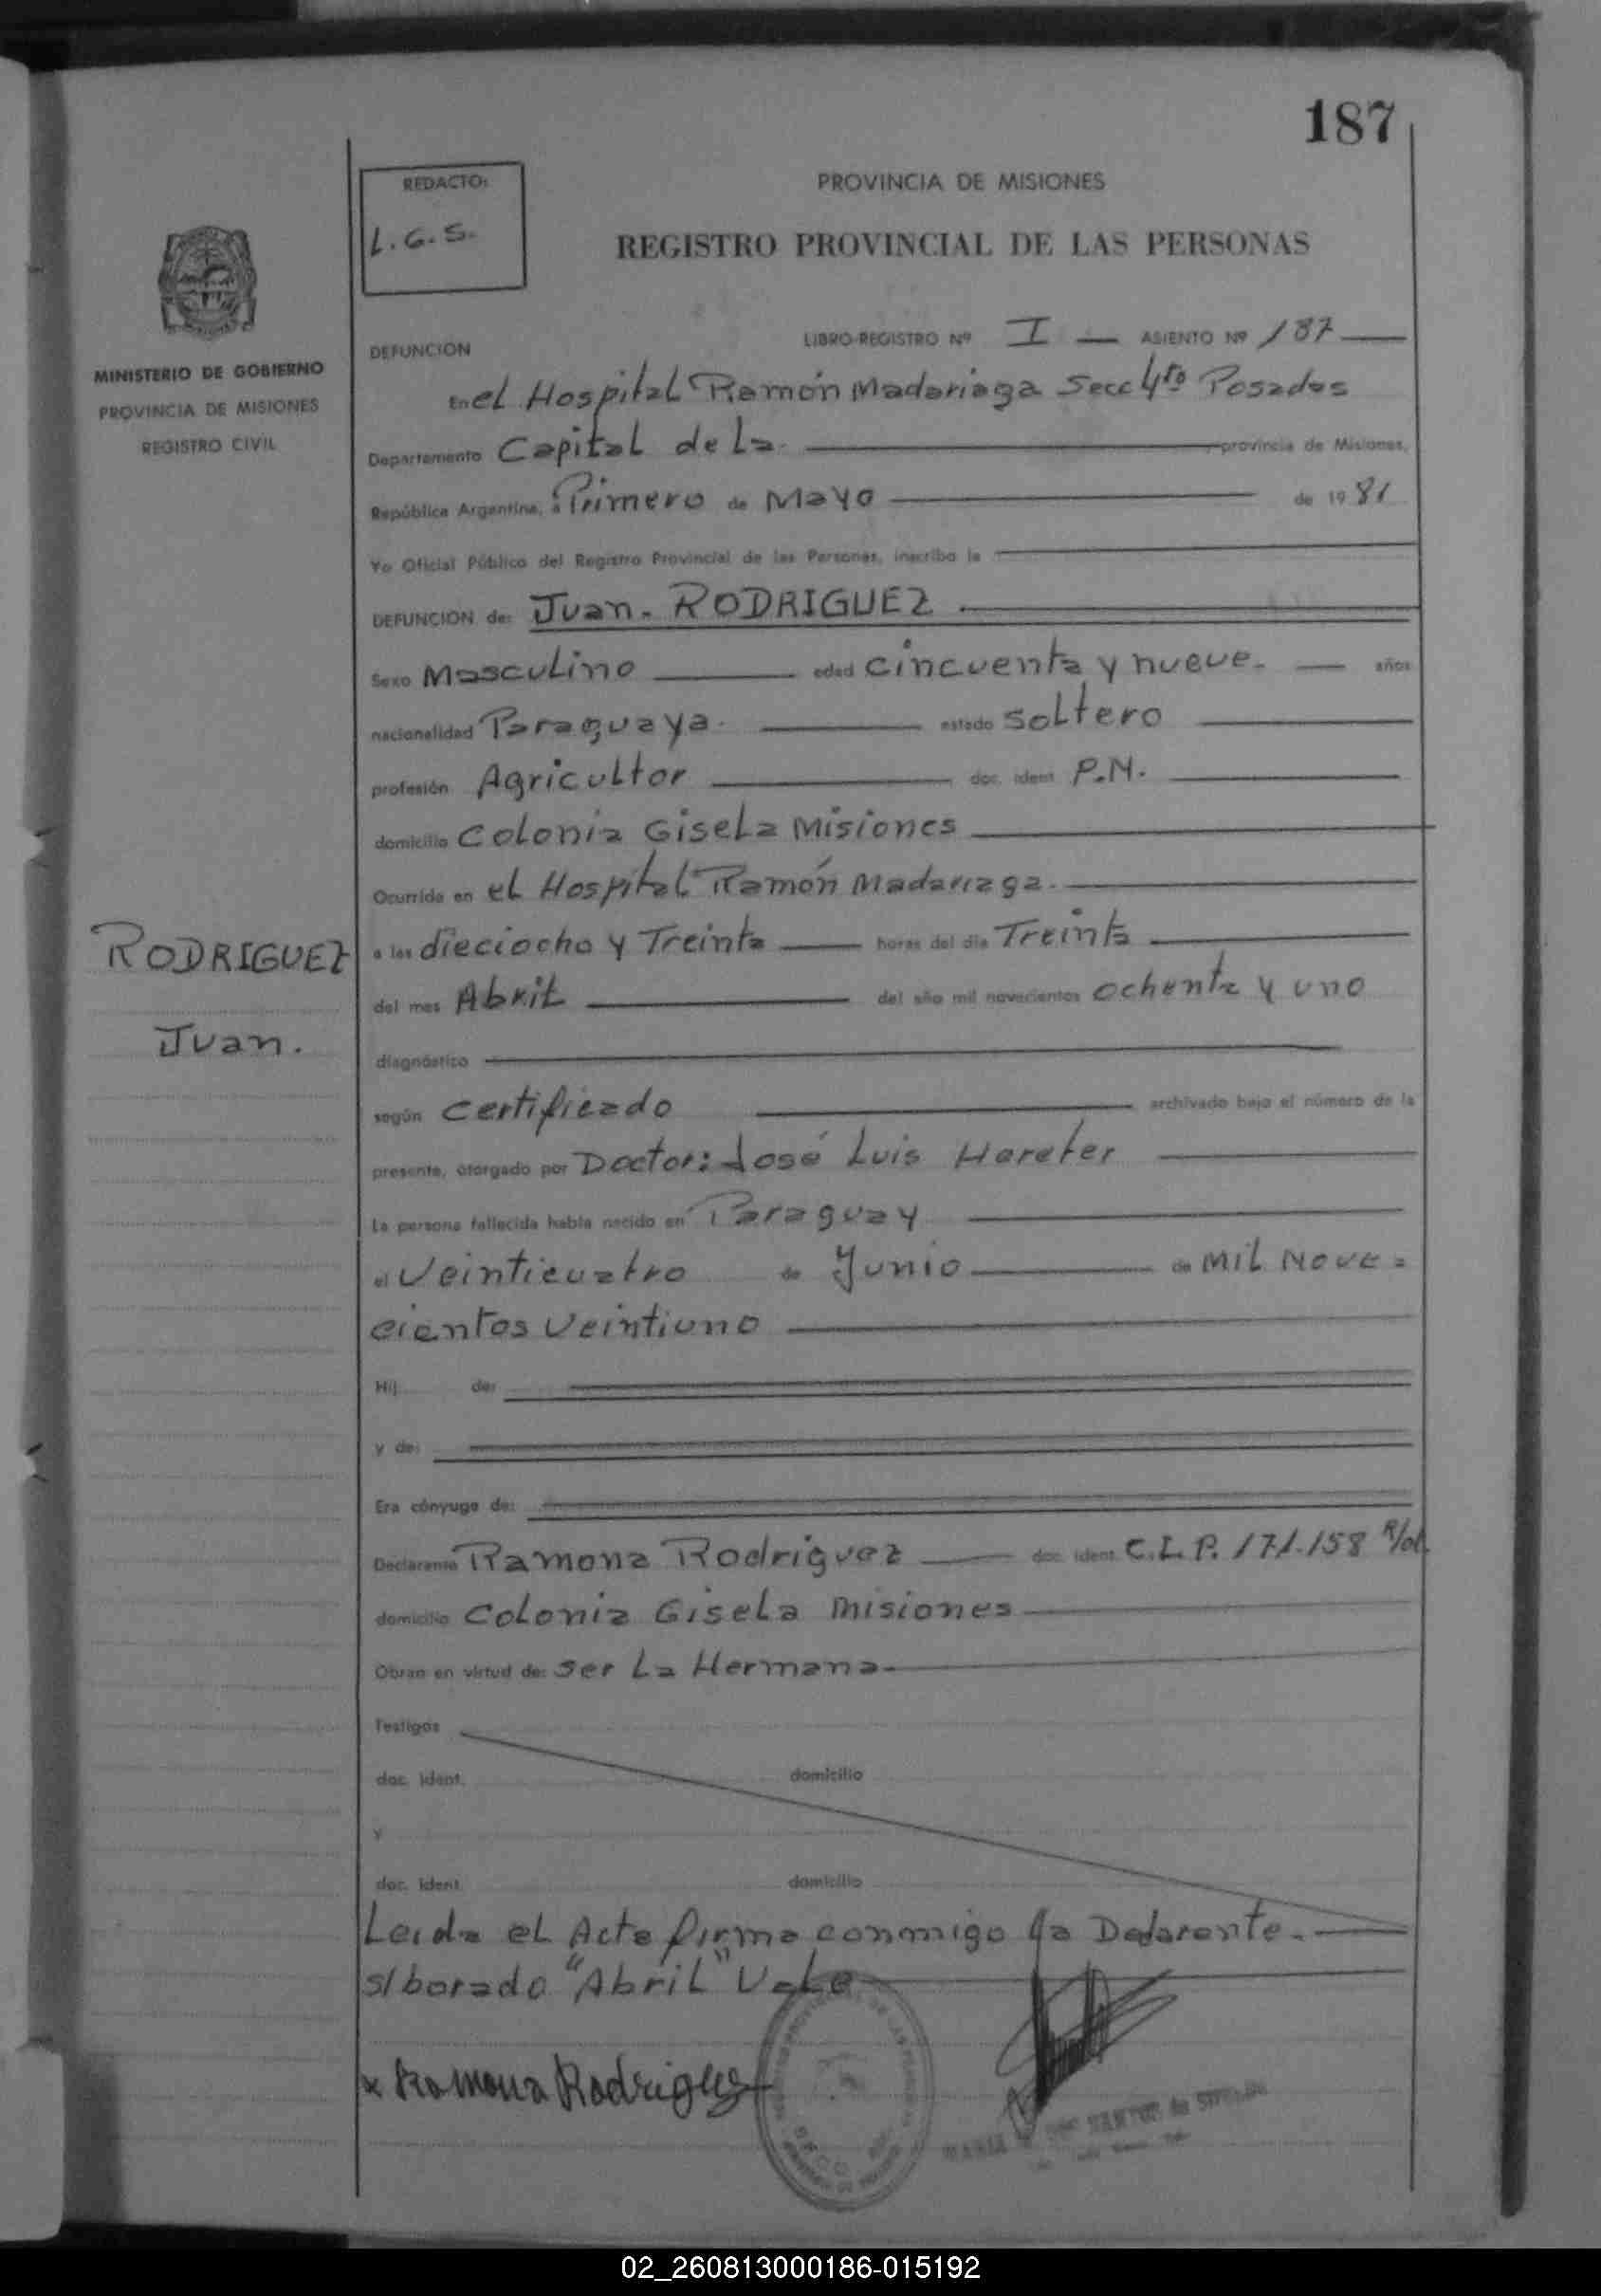 187
REDACTO:
L.G.S.
PROVINCIA DE MISIONES
REGISTRO PROVINCIAL DE LAS PERSONAS
MINISTERIO DE GOBIERNO
PROVINCIA DE MISIONES
REGISTRO CIVIL
DEFUNCION
LIBRO-REGISTRO Nº I — ASIENTO Nº 187
En el Hospital Ramón Madariaga Secc 4ta Posadas
Departamento Capital de La provincia de Misiones,
República Argentina, a Primero de Mayo de 1981
Yo Oficial Público del Registro Provincial de las Personas, inscribo la
DEFUNCION de: Juan. RODRIGUEZ
Sexo Masculino edad cincuenta y nueve. años
nacionalidad Paraguaya. estado soltero
profesión Agricultor doc. ident. P.N.
domicilio Colonia Gisela Misiones
Ocurrida en el Hospital Ramón Madariaga.
RODRIGUEZ
Juan.
a las dieciocho y Treinta horas del día Treinta
del mes Abril del año mil novecientos ochenta y uno
diagnóstico
según certificado archivado bajo el número de la
presente, otorgado por Doctor: José Luis Hareter
La persona fallecida había nacido en Paraguay
el Veinticuatro de Junio de Mil Nove=
cientos Veintiuno
Hij de:
y de:
Era cónyuge de:
Declarante Ramona Rodriguez doc. ident. C.I.P. 171.158
domicilio Colonia Gisela Misiones
Obran en virtud de: ser La Hermana.
Testigos
doc. ident. domicilio
y
doc. ident. domicilio
Leida el Acta firma conmigo la Declarante.
s/borado "Abril" Vale
x Ramona Rodriguez
02_260813000186-015192